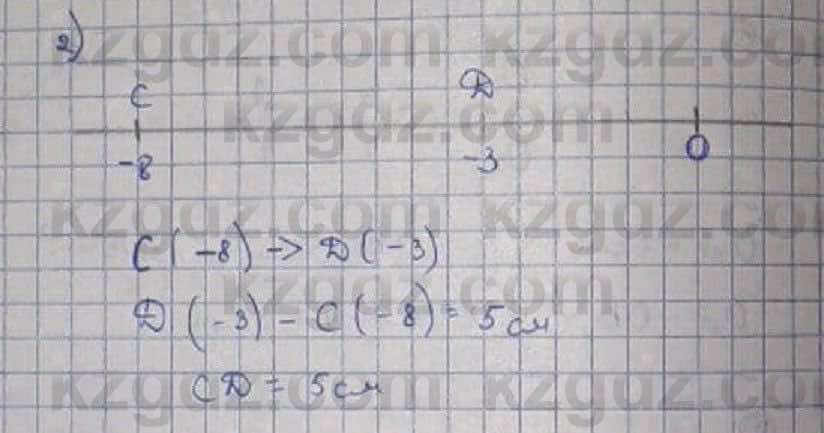 2)
C D
-8 -3 0
C(-8) -> D(-3)
D(-3) - C(-8) = 5 см
CD = 5 см
kzgdz.com kzgdz.com
kzgdz.com
kzgdz.com kzgdz.com
kzgdz.com
kzgdz.com kzgdz.com